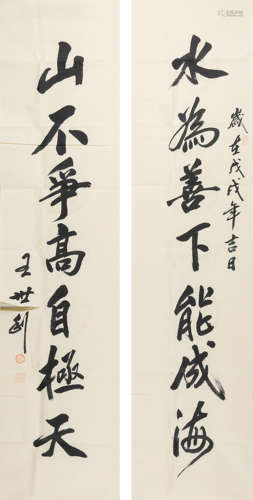 水為善下能成海
歲在戊戌年吉日
山不爭高自極天
王世利